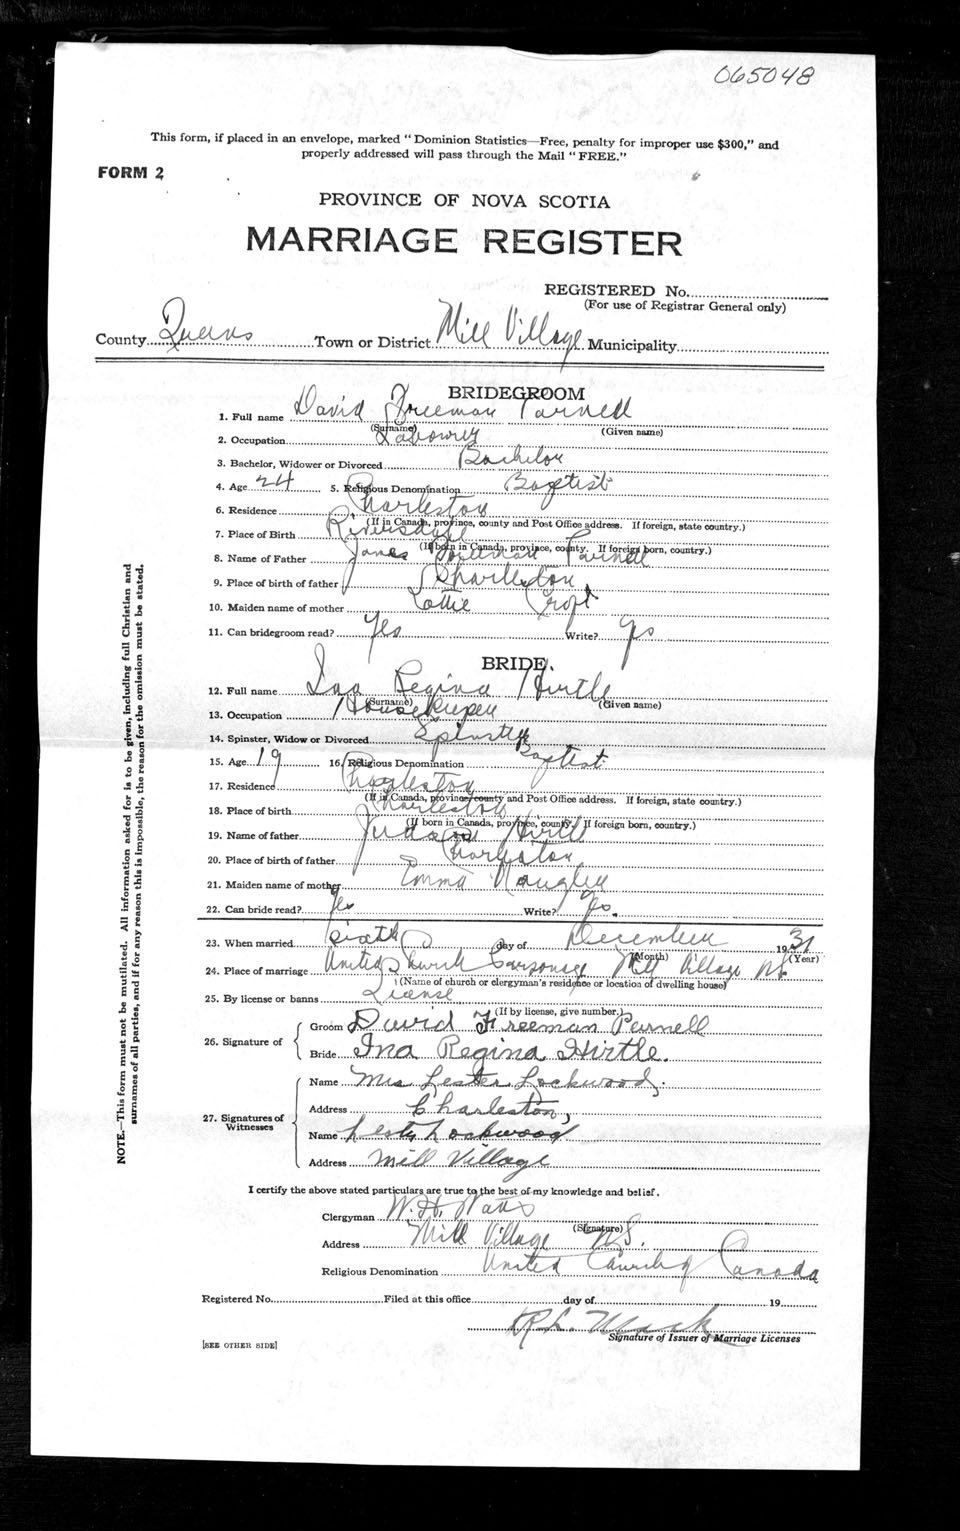 065048
This form, if placed in an envelope, marked "Dominion Statistics—Free, penalty for improper use $300," and
properly addressed will pass through the Mail "FREE."
FORM 2
PROVINCE OF NOVA SCOTIA
MARRIAGE REGISTER
REGISTERED No.
(For use of Registrar General only)
County Queens Town or District Mill Village Municipality
BRIDEGROOM
1. Full name David Freeman Parnell
(Surname) (Given name)
2. Occupation Labourer
3. Bachelor, Widower or Divorced Bachelor
4. Age 24 5. Religious Denomination Baptist
6. Residence Charleston
(If in Canada, province, county and Post Office address. If foreign, state country.)
7. Place of Birth Riversdale
(If born in Canada, province, county. If foreign born, country.)
8. Name of Father James Parnell
9. Place of birth of father Charleston
10. Maiden name of mother Lottie Croft
11. Can bridegroom read? Yes Write? Yes
BRIDE.
12. Full name Ina Regina Hirtle
(Surname) (Given name)
13. Occupation Housekeeper
14. Spinster, Widow or Divorced Spinster
15. Age 19 16. Religious Denomination Baptist
17. Residence Charleston
(If in Canada, province, county and Post Office address. If foreign, state country.)
18. Place of birth Charleston
(If born in Canada, province, county. If foreign born, country.)
19. Name of father Judson Hirtle
20. Place of birth of father Charleston
21. Maiden name of mother Emma Naugler
22. Can bride read? Yes Write? Yes.
23. When married sixth day of December 1931
(Month) (Year)
24. Place of marriage United Church Parsonage Mill Village N.S.
(Name of church or clergyman's residence or location of dwelling house)
25. By license or banns License
(If by license, give number.)
26. Signature of
Groom David Freeman Parnell
Bride Ina Regina Hirtle.
27. Signatures of Witnesses
Name Mrs Lester Lockwood,
Address Charleston,
Name Lester Lockwood
Address Mill Village
I certify the above stated particulars are true to the best of my knowledge and belief.
Clergyman W. H. Watts
(Signature)
Address Mill Village N.S.
Religious Denomination United Church of Canada
Registered No. Filed at this office day of 19
R. L. Mack
Signature of Issuer of Marriage Licenses
[SEE OTHER SIDE]
NOTE.—This form must not be mutilated. All information asked for is to be given, including full Christian and
surnames of all parties, and if for any reason this is impossible, the reason for the omission must be stated.